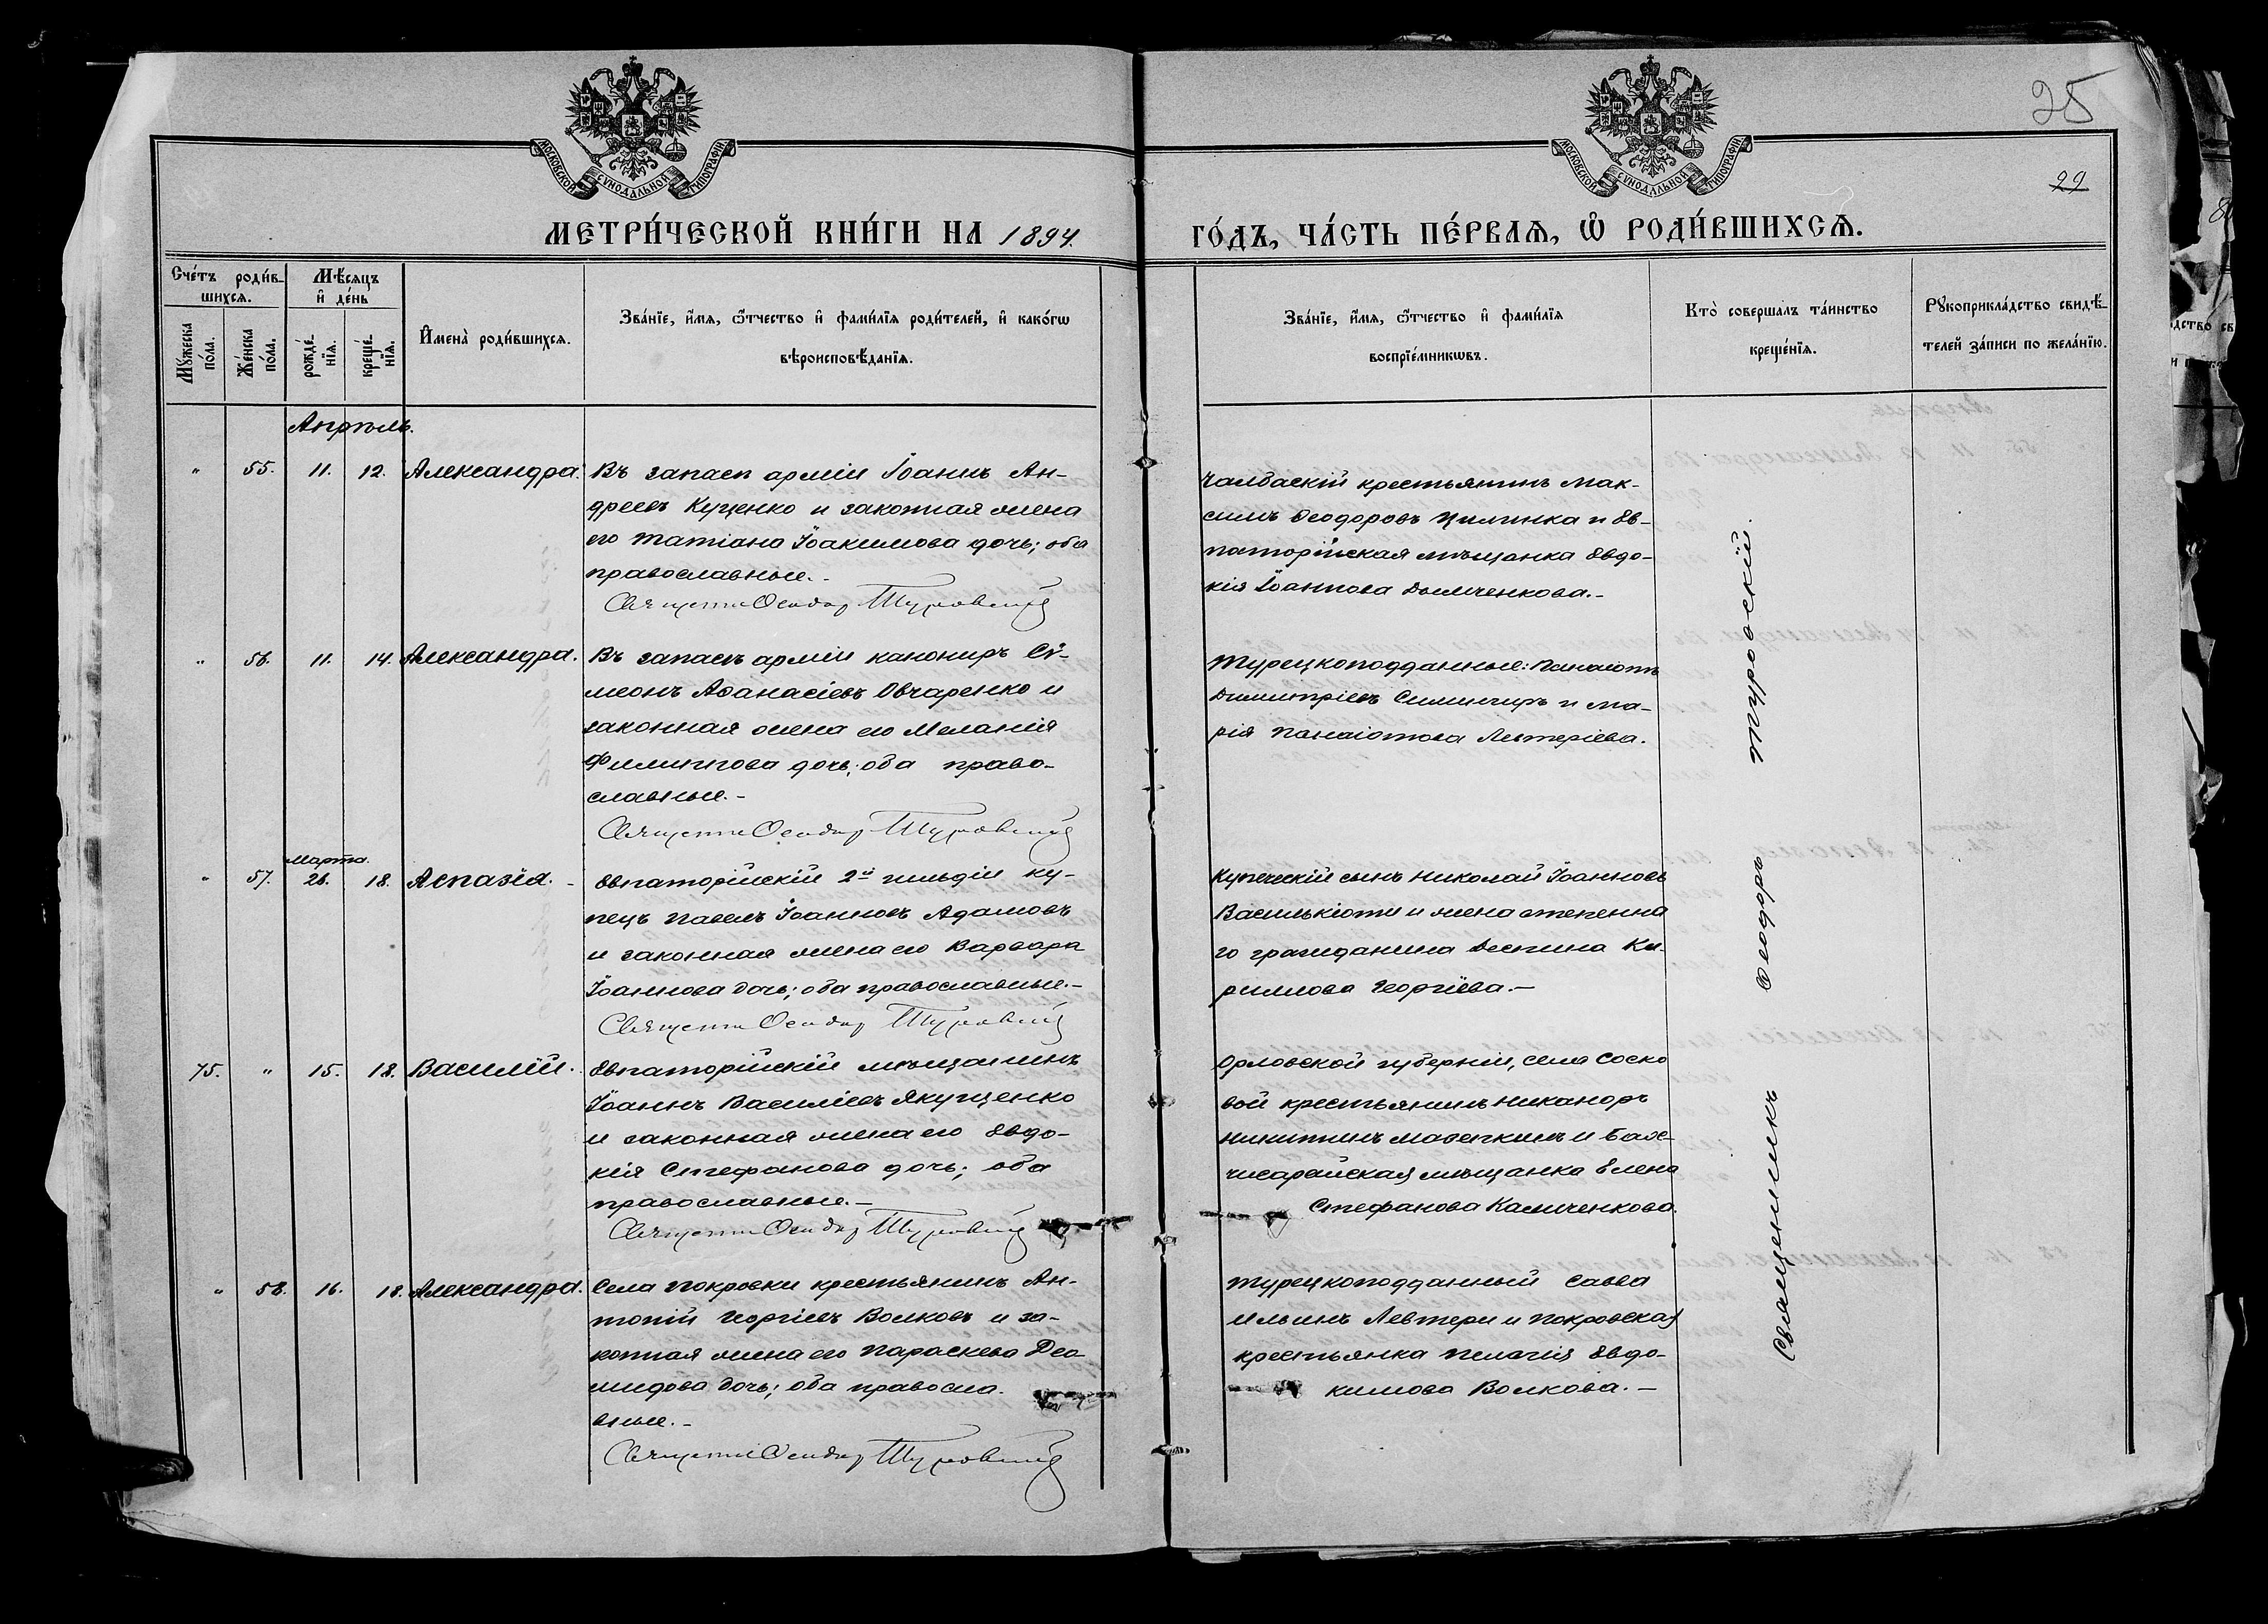 25
22
МОСКОВСКОЙ СѴНОДАЛЬНОЙ ТИПОГРАФІИ
МОСКОВСКОЙ СѴНОДАЛЬНОЙ ТИПОГРАФІИ
МЕТРИ́ЧЕСКОЙ КНИ́ГИ НА 1894. ГО́ДЪ, ЧА́СТЬ ПЕ́РВАѦ, Ѽ РОДИ́ВШИХСѦ.
Сче́тъ роди́в-
шихсѧ.
Мꙋжеска по́ла.
Же́нска по́ла.
Мѣ́сяцъ
и҆ де́нь
рожде́-
нїѧ.
креще́-
нїѧ.
И҆мена̀ роди́вшихсѧ.
Зва́нїе, и҆́мѧ, ѻ҆́тчество и҆ фами́лїѧ роди́телей, и҆ како́гѡ
вѣроисповѣ́данїѧ.
Зва́нїе, и҆́мѧ, ѻ҆́тчество и҆ фами́лїѧ
воспрїе́мникѡвъ.
Кто̀ соверша́лъ та́инство
креще́нїѧ.
Рꙋкоприкла́дство свидѣ́-
телей за́писи по жела́нїю.
Апрѣль.
" 55. 11. 12. Александра.
Въ запасѣ арміи Іоаннъ Ан-
дреевъ Куценко и законная жена
его Татіана Іоакимова дочь; оба
православные.-
Священн Ѳеодор Туровскій
Чалбаскій крестьянинъ Мак-
симъ Ѳеодоровъ Цилинка и Ев-
паторійская мѣщанка Евдо-
кія Іоаннова Домченкова.-
" 56. 11. 14. Александра.
Въ запасѣ арміи канониръ Сѵ-
меонъ Аѳанасіевъ Овчаренко и
законная жена его Меланія
Филиппова дочь; оба право-
славные.-
Священн Ѳеодор Туровскій
Турецкоподданные: Панаіотъ
Димитріевъ Симингиръ и Ма-
рія Панаіотова Левтеріева.
" 57. Марта. 26. 18. Аспазія.-
Евпаторійскій 2й гильдіи ку-
пецъ Павелъ Іоанновъ Адамовъ
и законная жена его Варвара
Іоаннова дочь; оба православные.-
Священн Ѳеодор Туровскій
Купеческій сынъ Николай Іоанновъ
Василькіоти и жена степенна
го гражданина Деспина Ки-
риллова Георгіева.-
75. " 15. 18. Василій.
Евпаторійскій мѣщанинъ
Іоаннъ Василіевъ Якущенко
и законная жена его Евдо-
кія Стефанова дочь; оба
православные.-
Священн Ѳеодор Туровскій
Орловской губерніи, села Соско
вой крестьянинъ Никаноръ
Никитинъ Мазепкинъ и Бах-
чисарайская мѣщанка Елена
Стефанова Камиченкова.
" 58. 16. 18. Александра.
Села Покровки крестьянинъ Ан-
тоній Георгіевъ Волковъ и за-
конная жена его Параскева Део
мидова дочь; оба правосла-
вные.-
Священн Ѳеодор Туровскій
Турецкоподданный Савва
Ильинъ Левтери и Покровская
крестьянка Пелагія Евдо-
кимова Волкова.-
Священникъ Ѳеодоръ Туровскій.